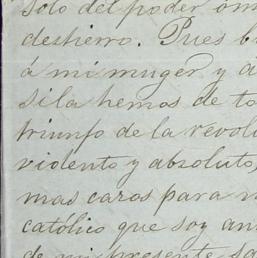 solo del poder om
destierro. Pues b
á mi muger y á
si la hemos de to
triunfo de la revolu
violento y absoluto,
mas caros para m
católico que soy an
de mi presente sa